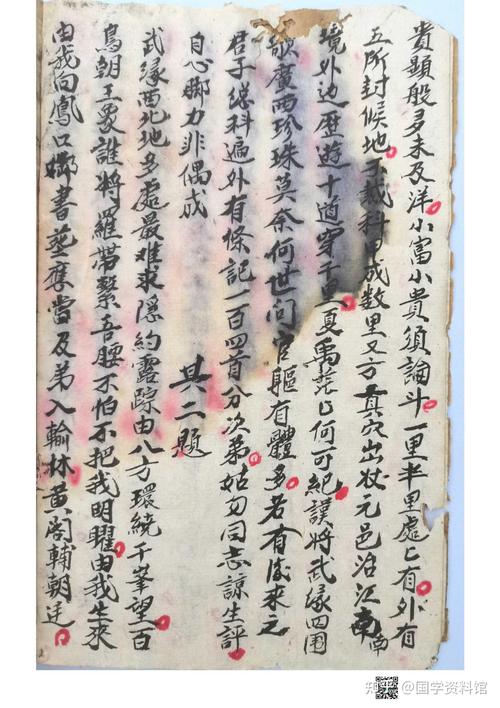 貴顯般多未及洋小富小貴須論斗一里半里處匕有外有
五所封候地不裁科里成数里又方真穴出狀元邑沿江南南
境外边歷遊十道穿千里夏禹茫匕何可紀謨将武缘四围
歌廣西珍珠莫奈何世间官軀有體多若有後來之
君子總科遍外有條記一百四首分次弟姑勿同志諒生評
自心脚力非偶成
其二題
武缘西北地多處最难求隱約露踪由八方環繞千峯望一百
鳥朝王象誰将羅帶繫吾腰不怕不把我明曜由我生來
由我向鳳口啣書塟應當及弟入翰林黄阁輔朝廷
知乎 @国学资料馆